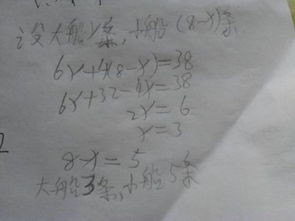 设大船x条,小船(8-x)条
6x+4(8-x)=38
6x+32-4x=38
2x=6
x=3
8-x=5
大船3条,小船5条